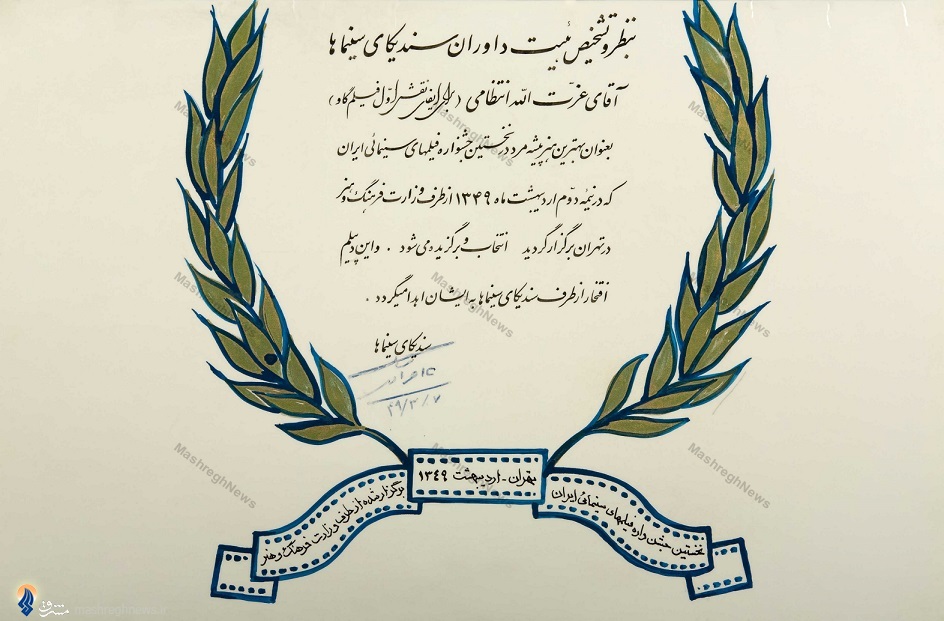 بنظر و تشخیص هیئت داوران سندیکای سینماها
آقای عزت الله انتظامی (برای ایفای نقش اول فیلم گاو)
بعنوان بهترین هنرپیشه مرد در نخستین جشنواره فیلمهای سینمائی ایران
که در نیمه دوم اردیبهشت ماه ۱۳۴۹ از طرف وزارت فرهنگ و هنر
در تهران برگزار گردید انتخاب و برگزیده می شود . و این دیپلم
افتخار از طرف سندیکای سینماها به ایشان اهدا میگردد .
سندیکای سینماها
۴۹/۳/۷
نخستین جشنواره فیلمهای سینمائی ایران
تهران - اردیبهشت ۱۳٤۹
برگزار شده از طرف وزارت فرهنگ و هنر
MashreghNews
MashreghNews
MashreghNews
MashreghNews
MashreghNews
MashreghNews
MashreghNews
MashreghNews
MashreghNews
مشرق
mashreghnews.ir